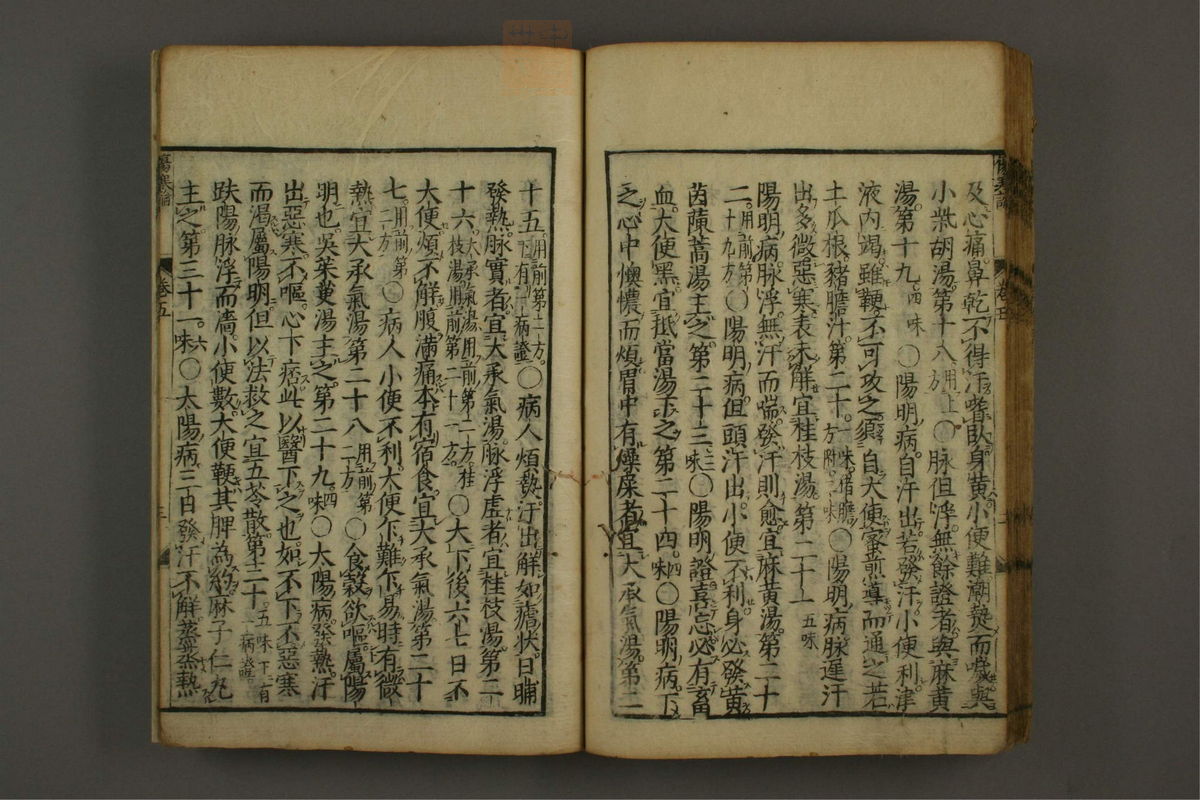 及心痛鼻乾不得汗嗜臥身黃小便難潮熱而噦與
小柴胡湯第十八用上方○脉但浮無餘證者與麻黃
湯第十九四味○陽明病自汗出若發汗小便利津
液內竭雖鞕不可攻之須自大便蜜煎導而通之若
土瓜根豬膽汁第二十一味猪膽方附二味○陽明病脉遲汗
出多微惡寒表未解宜桂枝湯第二十一五味
陽明病脉浮無汗而喘發汗則愈宜麻黃湯第二十
二用前第十九方○陽明病但頭汗出小便不利身必發黃
茵蔯蒿湯主之第二十三三味○陽明證喜忘必有畜
血大便黑宜抵當湯主之第二十四四味○陽明病下
之心中懊憹而煩胃中有燥屎者宜大承氣湯第二
傷寒論
卷五
十五用前第二方下有一病證○病人煩熱汗出解如瘧狀日晡
發熱脉實者宜大承氣湯脉浮虛者宜桂枝湯第二
十六大承氣湯用前第二方桂枝湯用前第二十一方○大下後六七日不
大便煩不解腹滿痛本有宿食宜大承氣湯第二十
七用前第二方○病人小便不利大便乍難乍易時有微
熱宜大承氣湯第二十八用前第二方○食穀欲嘔屬陽
明也吳茱萸湯主之第二十九四味○太陽病發熱汗
出惡寒不嘔心下痞此以醫下之也如不下不惡寒
而渴屬陽明但以法救之宜五苓散第三十五味下有一病證
趺陽脉浮而濇小便數大便鞕其脾為約麻子仁丸
主之第三十一六味○太陽病三日發汗不解蒸蒸熱
傷寒論
卷五
三